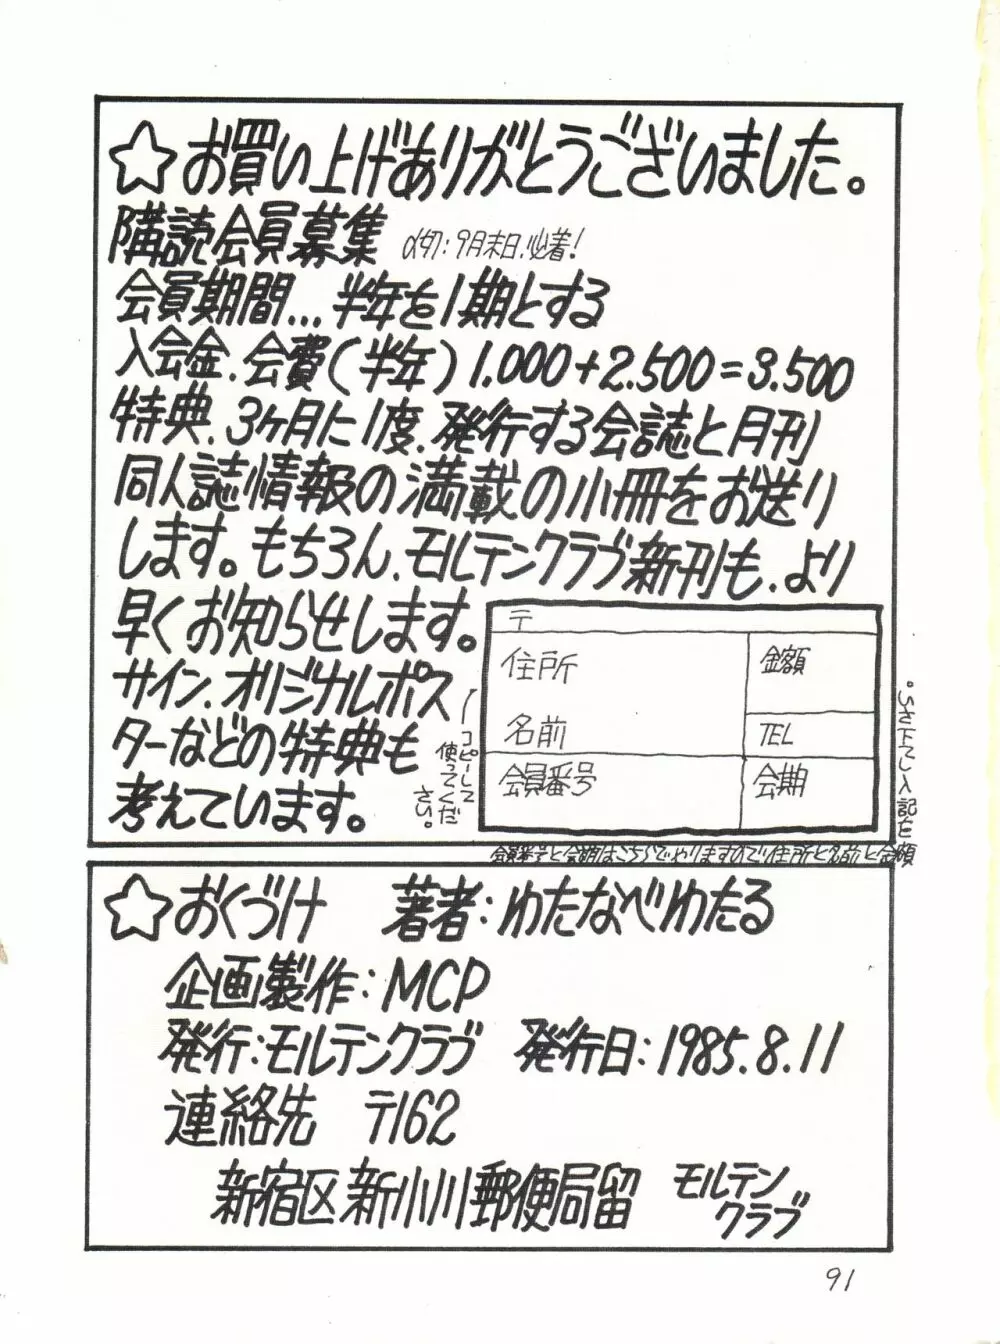 ☆お買い上げありがとうございました。
購読会員募集 〆切:9月末日.必着!
会員期間…半年を1期とする
入会金.会費(半年)1.000+2.500=3.500
特典.3ヶ月に1度.発行する会誌と月刊
同人誌情報の満載の小冊をお送り
します。もちろん.モルテンクラブ新刊も.より
早くお知らせします。
サイン.オリジナルポス
ターなどの特典も
考えています。
コピーして
使ってくだ
さい。
〒
住所
金額
名前
TEL
会員番号
会期
会員番号と会期はこちらでやりますので住所と名前と金額
を記入して下さい。
☆おくづけ 著者:わたなべわたる
企画製作:MCP
発行:モルテンクラブ 発行日:1985.8.11
連絡先 〒162
新宿区新小川郵便局留 モルテン
クラブ
91